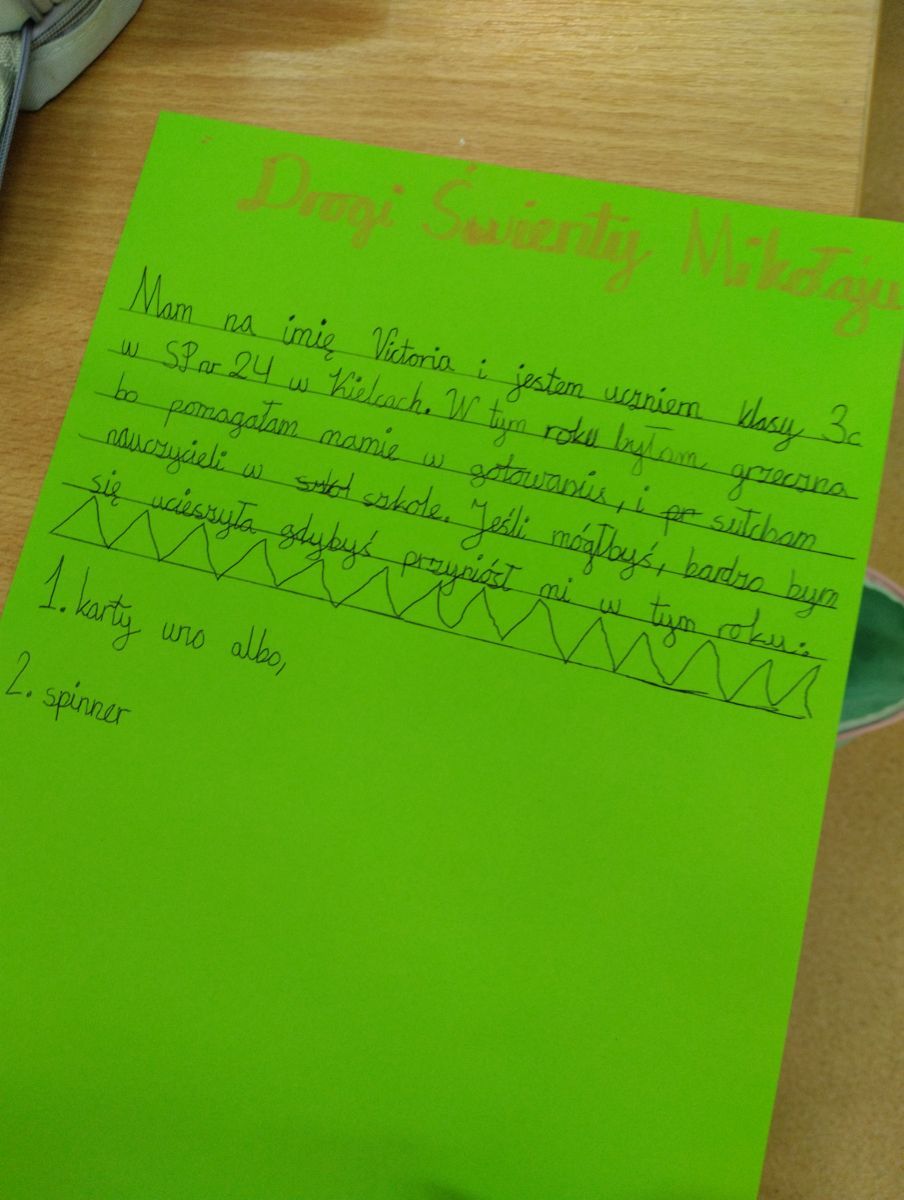 Drogi Świenty Mikołaju
Mam na imię Victoria i jestem uczniem klasy 3c
w SP nr 24 w Kielcach. W tym roku byłam grzeczna
bo pomagałam mamie w gotowaniu, i pr sułcham
nauczycieli w szkol szkole. Jeśli mógłbyś, bardzo bym
się ucieszyła gdybyś przyniósł mi w tym roku:
1. karty uno albo,
2. spinner